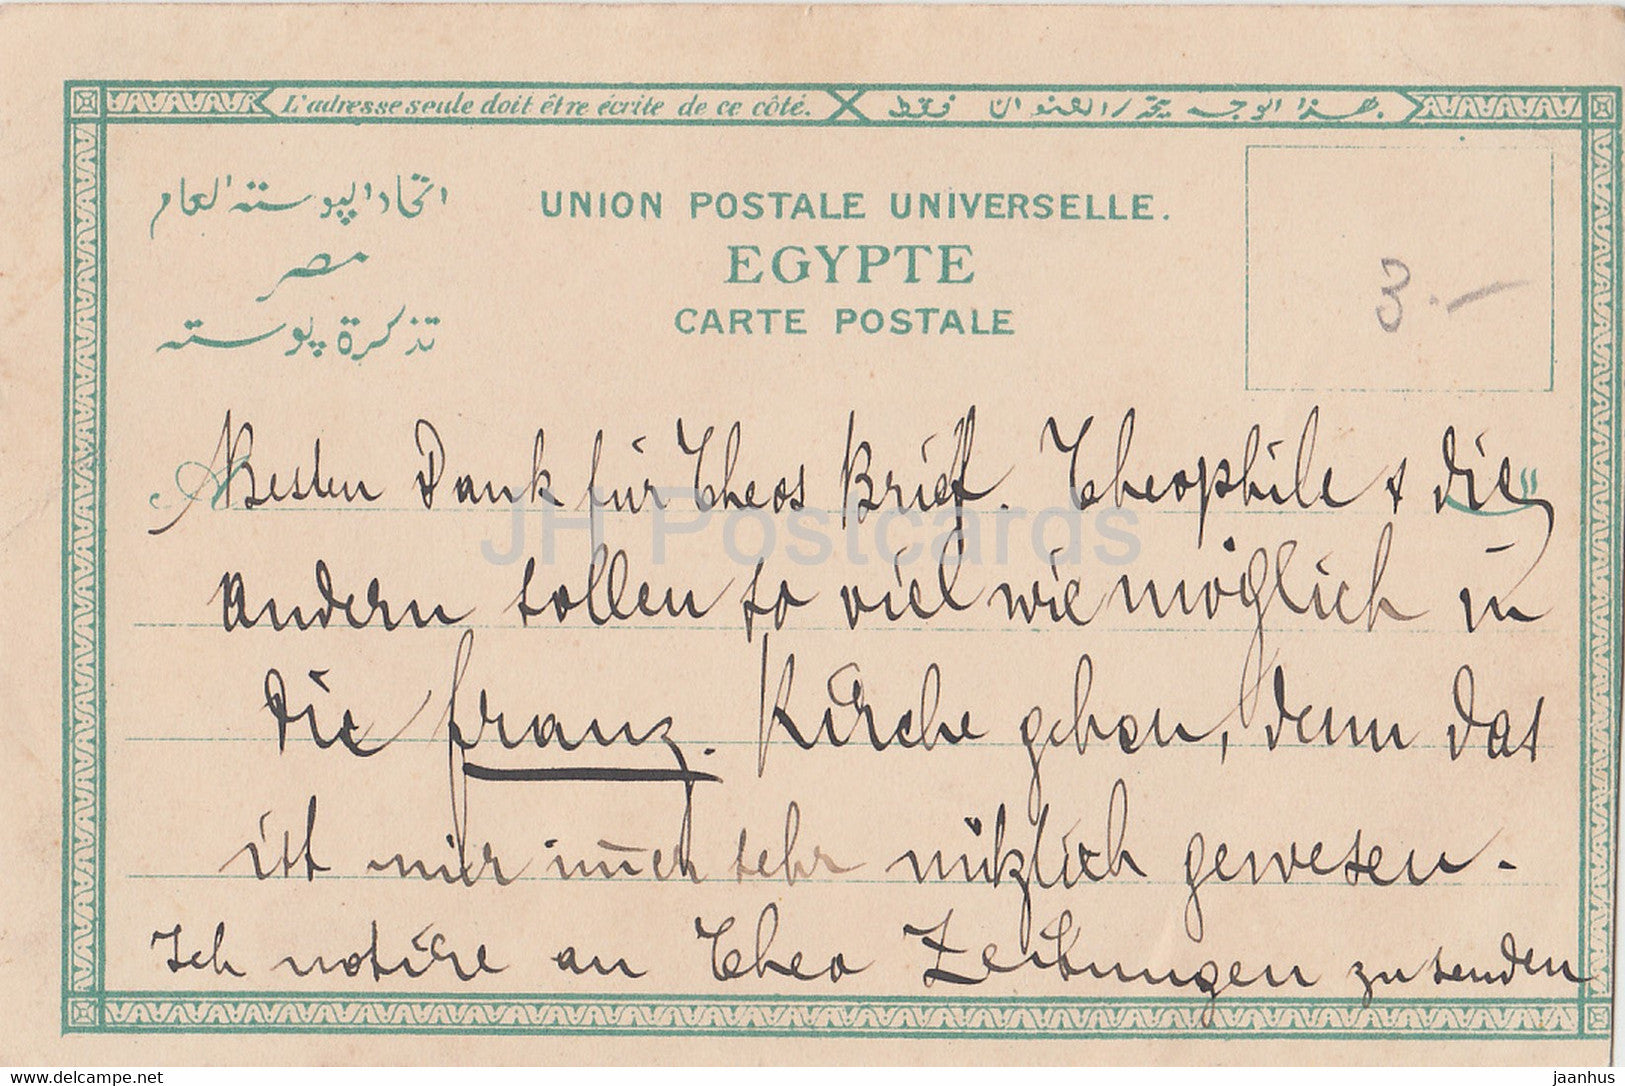 L'adresse seule doit être écrite de ce côté. هذا الوجه يحرر العنوان فقط
اتحاد البوسته العام
مصر
تذكرة بوسته
UNION POSTALE UNIVERSELLE.
EGYPTE
CARTE POSTALE
3.-
Besten Dank für Theos Brief. Theophile & die
andern sollen so viel wie möglich in
die franz. Kirche gehen, denn das
ist mir im̅er sehr nützlich gewesen -
Ich notire an Theo Zeitungen zu senden
JH Postcards
https://www.delcampe.net
jaanhus